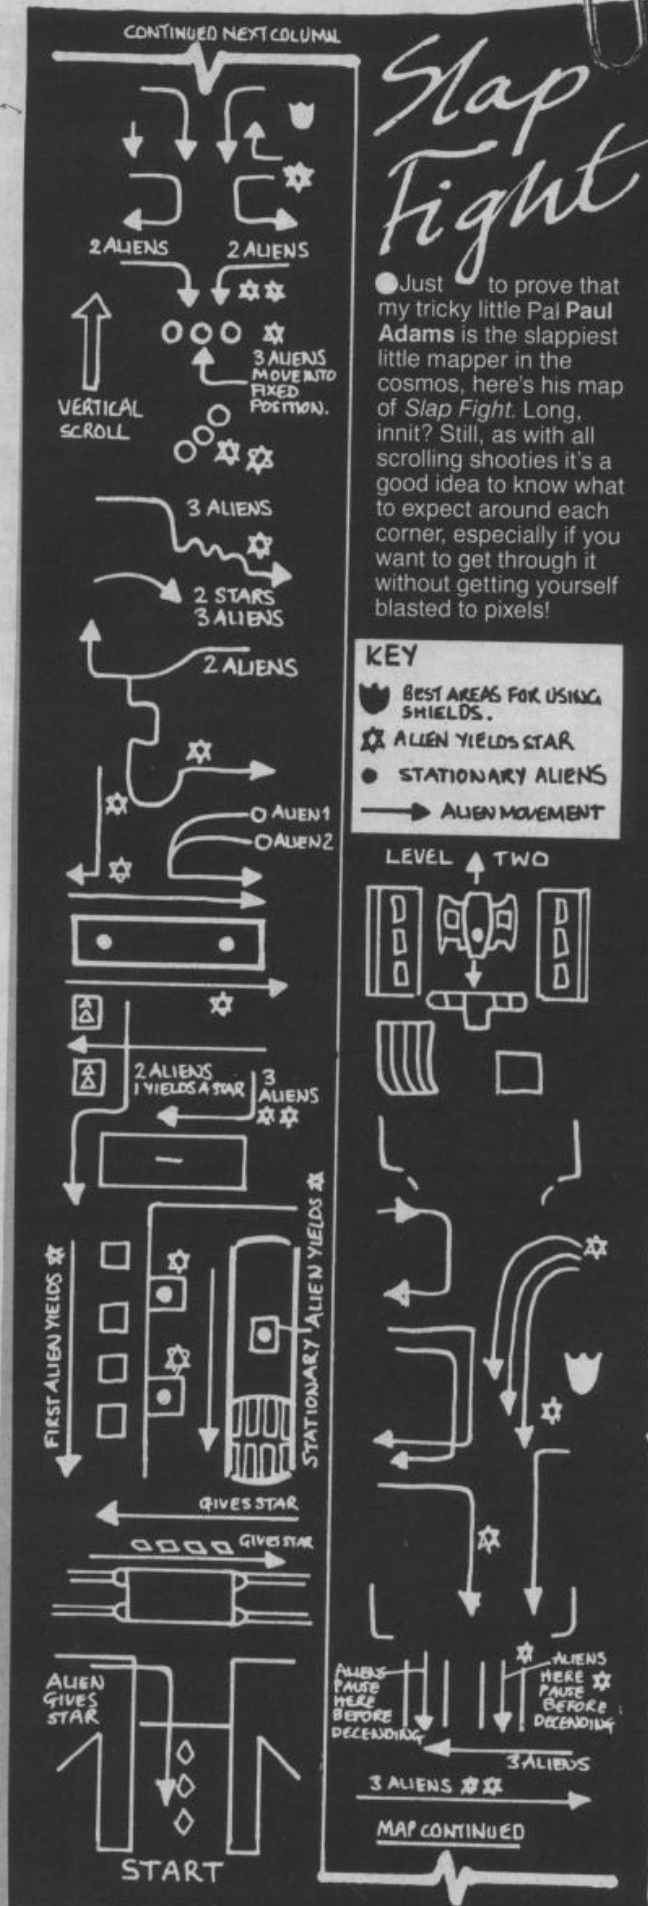 CONTINUED NEXT COLUMN
2 ALIENS
2 ALIENS
3 ALIENS
MOVE INTO
FIXED
POSITION.
VERTICAL
SCROLL
3 ALIENS
2 STARS
3 ALIENS
2 ALIENS
ALIEN 1
ALIEN 2
2 ALIENS
1 YIELDS A STAR
3
ALIENS
FIRST ALIEN YIELDS
STATIONARY ALIEN YIELDS
GIVES STAR
GIVES STAR
ALIEN
GIVES
STAR
START
Slap
Fight
●Just to prove that
my tricky little Pal Paul
Adams is the slappiest
little mapper in the
cosmos, here's his map
of Slap Fight. Long,
innit? Still, as with all
scrolling shooties it's a
good idea to know what
to expect around each
corner, especially if you
want to get through it
without getting yourself
blasted to pixels!
KEY
BEST AREAS FOR USING
SHIELDS.
ALIEN YIELDS STAR
STATIONARY ALIENS
ALIEN MOVEMENT
LEVEL TWO
ALIENS
PAUSE
HERE
BEFORE
DECENDING
ALIENS
HERE
PAUSE
BEFORE
DECENDING
3 ALIENS
3 ALIENS
MAP CONTINUED